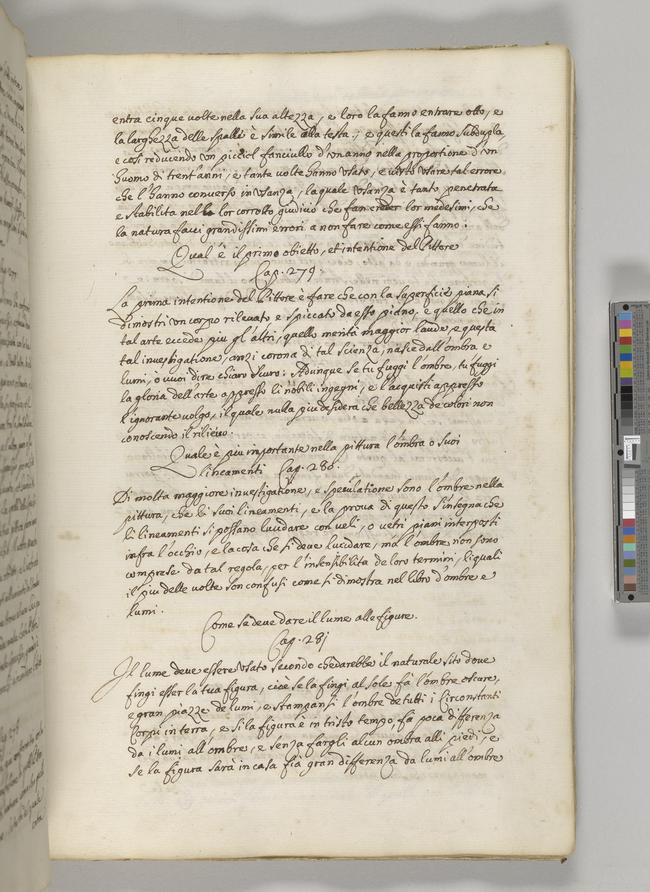 entra cinque volte nella sua altezza, e loro la fanno entrare otto, e
la larghezza delle spalle è simile alla testa, e questi la fanno subdupla,
e così reducendo un piccol fanciullo d'un anno nella proportione d'un
huomo di trent'anni, e tante volte hanno usato, e visto usare tal errore
che l'hanno converso in usanza, la quale usanza è tanto penetrata
e stabilita nel lor corrotto giudicio che fan creder lor medesimi, che
la natura facci grandissimi errori a non fare come essi fanno.
Qual'è il primo obietto, et intentione del Pittore
Cap. 279.
La prima intentione del Pittore è fare che con la superficie piana si
dimostri un corpo rilevato e spiccato da esso piano, e quello che in
tal arte eccede più gl'altri, quello merita maggior laude, e questa
tal investigatione, anzi corona di tal scienza, nasce dall'ombra e
lumi, o vuoi dire chiaro scuro. Adunque se tu fuggi l'ombre, tu fuggi
la gloria dell'arte appresso li nobili ingegni, e l'acquisti appresso
l'ignorante volgo, il quale nulla più desidera che bellezza de colori non
conoscendo il rilievo.
Quale è più importante nella pittura l'ombra o suoi
lineamenti Cap. 280.
Di molta maggiore investigatione, e speculatione sono l'ombre nella
pittura, che li suoi lineamenti, e la prova di questo s'insegna che
li lineamenti si possano lucidare con veli, o vetri piani interposti
infra l'occhio, e la cosa che si deve lucidare, ma l'ombre non sono
comprese da tal regola, per l'insensibilita de loro termini, li quali
il più delle volte son confusi come si dimostra nel libro d'ombre e
lumi.
Come se deve dare il lume alle figure.
Cap. 281
Il lume deve essere usato secondo che darebbe il naturale sito dove
fingi esser la tua figura, cioè se la fingi al sole fà l'ombre oscure,
e gran piazze de lumi, e stampansi l'ombre de tutti i circonstanti
corpi in terra, e si la figura è in tristo tempo, fà poca differenza
da i lumi all'ombre, e senza fargli alcun ombra alli piedi, e
se la figura sarà in casa fià gran differenza da lumi all'ombre